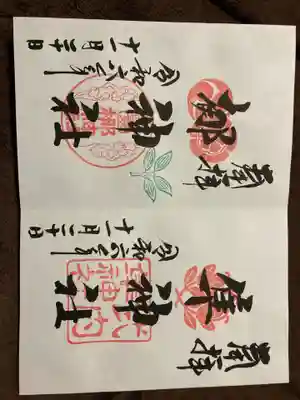 奉拝
梛神社
令和六年
十一月三十日
奉拝
隼神社
令和六年
十一月三十日